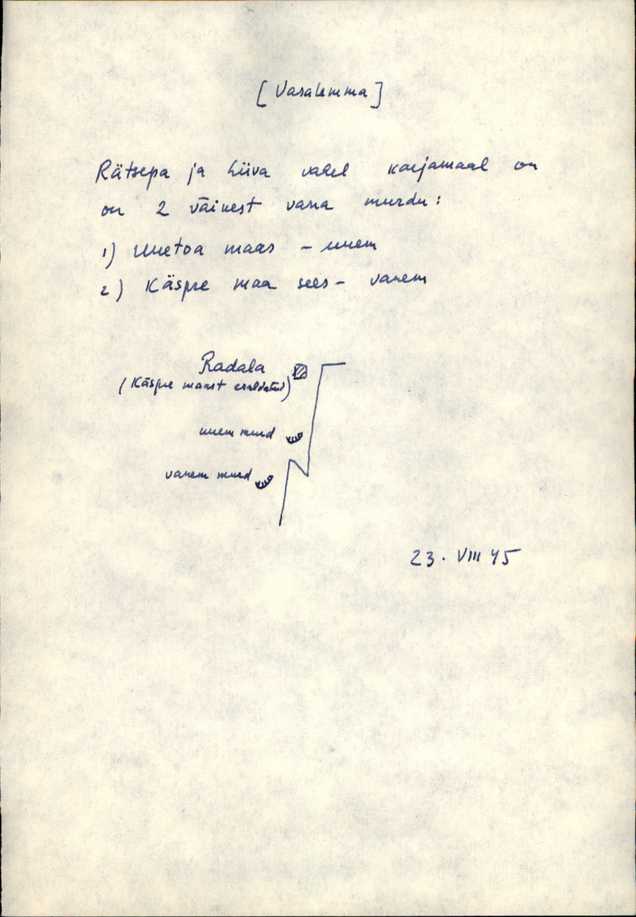 [Vasalemma]
Rätsepa ja Liiva vahel karjamaal on
on 2 väikest vana murdu:
1) Uuetoa maas - uuem
2) Käspre maa sees - vanem
Radala
(Käspre maast eraldatud)
uuem murd
vanem murd
23. VIII 45